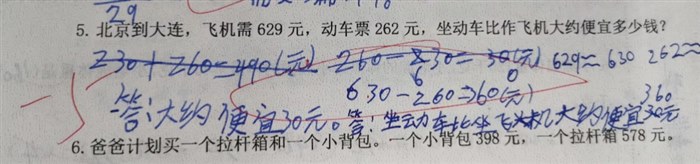 29
5. 北京到大连，飞机需 629 元，动车票 262 元，坐动车比作飞机大约便宜多少钱？
230+260=490(元) 260-230=30(元) 629≈630 262≈260
630-260=360(元)
答：大约便宜30元。答：坐动车比坐飞机大约便宜360元
6. 爸爸计划买一个拉杆箱和一个小背包。一个小背包 398 元，一个拉杆箱 578 元。